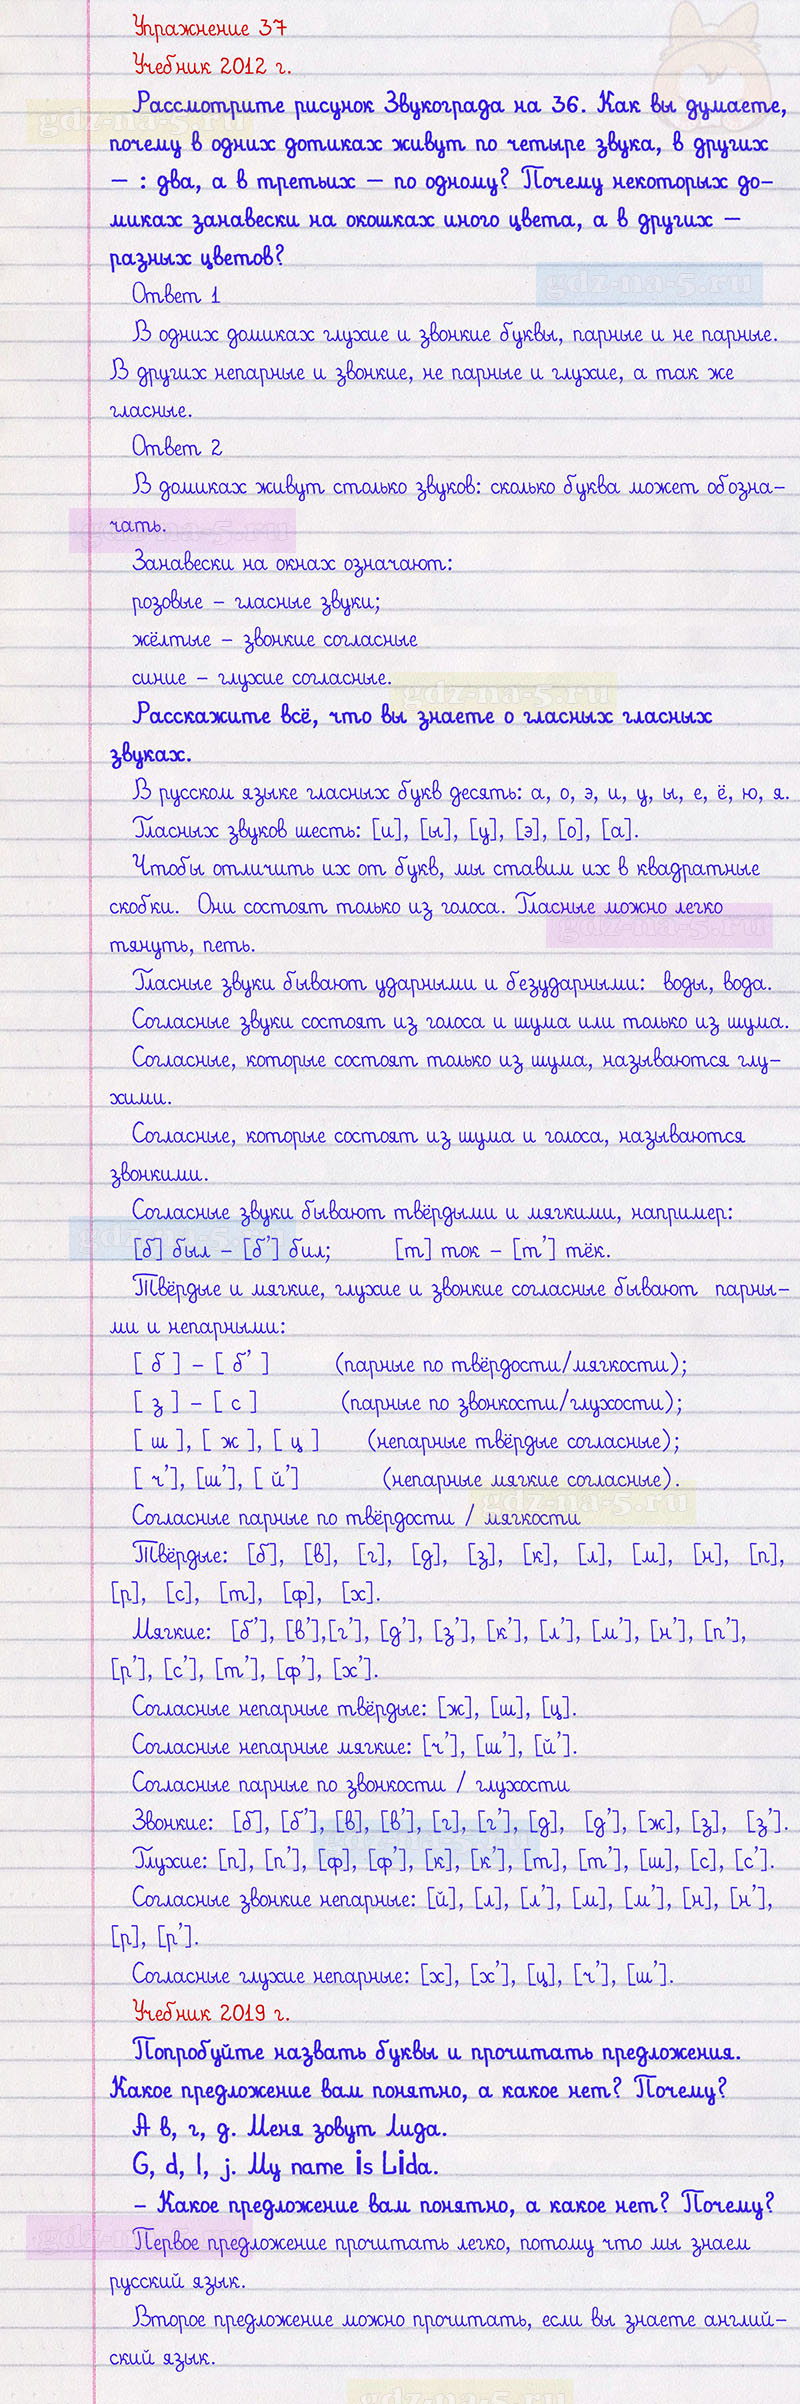 Упражнение 37
Учебник 2012 г.
Рассмотрите рисунок Звукограда на 36. Как вы думаете,
почему в одних дотиках живут по четыре звука, в других
– : два, а в третьих – по одному? Почему некоторых до-
миках занавески на окошках иного цвета, а в других –
разных цветов?
gdz-na-5.ru
gdz-na-5.ru
Ответ 1
В одних домиках глухие и звонкие буквы, парные и не парные.
В других непарные и звонкие, не парные и глухие, а так же
гласные.
Ответ 2
В домиках живут столько звуков: сколько буква может обозна-
чать.
gdz-na-5.ru
Занавески на окнах означают:
розовые – гласные звуки;
жёлтые – звонкие согласные
синие – глухие согласные.
gdz-na-5.ru
Расскажите всё, что вы знаете о гласных гласных
звуках.
В русском языке гласных букв десять: а, о, э, и, у, ы, е, ё, ю, я.
Гласных звуков шесть: [и], [ы], [у], [э], [о], [а].
Чтобы отличить их от букв, мы ставим их в квадратные
скобки. Они состоят только из голоса. Гласные можно легко
тянуть, петь.
gdz-na-5.ru
Гласные звуки бывают ударными и безударными: воды, вода.
Согласные звуки состоят из голоса и шума или только из шума.
Согласные, которые состоят только из шума, называются глу-
хими.
Согласные, которые состоят из шума и голоса, называются
звонкими.
Согласные звуки бывают твёрдыми и мягкими, например:
[б] был – [б’] бил; [т] ток – [т’] тёк.
gdz-na-5.ru
Твёрдые и мягкие, глухие и звонкие согласные бывают парны-
ми и непарными:
[ б ] – [ б’ ] (парные по твёрдости/мягкости);
[ з ] – [ с ] (парные по звонкости/глухости);
[ ш ], [ ж ], [ ц ] (непарные твёрдые согласные);
[ ч’], [ш’], [ й’] (непарные мягкие согласные).
gdz-na-5.ru
Согласные парные по твёрдости / мягкости
Твёрдые: [б], [в], [г], [д], [з], [к], [л], [м], [н], [п],
[р], [с], [т], [ф], [х].
Мягкие: [б’], [в’],[г’], [д’], [з’], [к’], [л’], [м’], [н’], [п’],
[р’], [с’], [т’], [ф’], [х’].
Согласные непарные твёрдые: [ж], [ш], [ц].
Согласные непарные мягкие: [ч’], [ш’], [й’].
Согласные парные по звонкости / глухости
Звонкие: [б], [б’], [в], [в’], [г], [г’], [д], [д’], [ж], [з], [з’].
gdz-na-5.ru
Глухие: [п], [п’], [ф], [ф’], [к], [к’], [т], [т’], [ш], [с], [с’].
Согласные звонкие непарные: [й], [л], [л’], [м], [м’], [н], [н’],
[р], [р’].
Согласные глухие непарные: [х], [х’], [ц], [ч’], [ш’].
Учебник 2019 г.
Попробуйте назвать буквы и прочитать предложения.
Какое предложение вам понятно, а какое нет? Почему?
А в, г, д. Меня зовут Лида.
G, d, l, j. My name is Lida.
– Какое предложение вам понятно, а какое нет? Почему?
gdz-na-5.ru
Первое предложение прочитать легко, потому что мы знаем
русский язык.
Второе предложение можно прочитать, если вы знаете англий-
ский язык.
gdz-na-5.ru